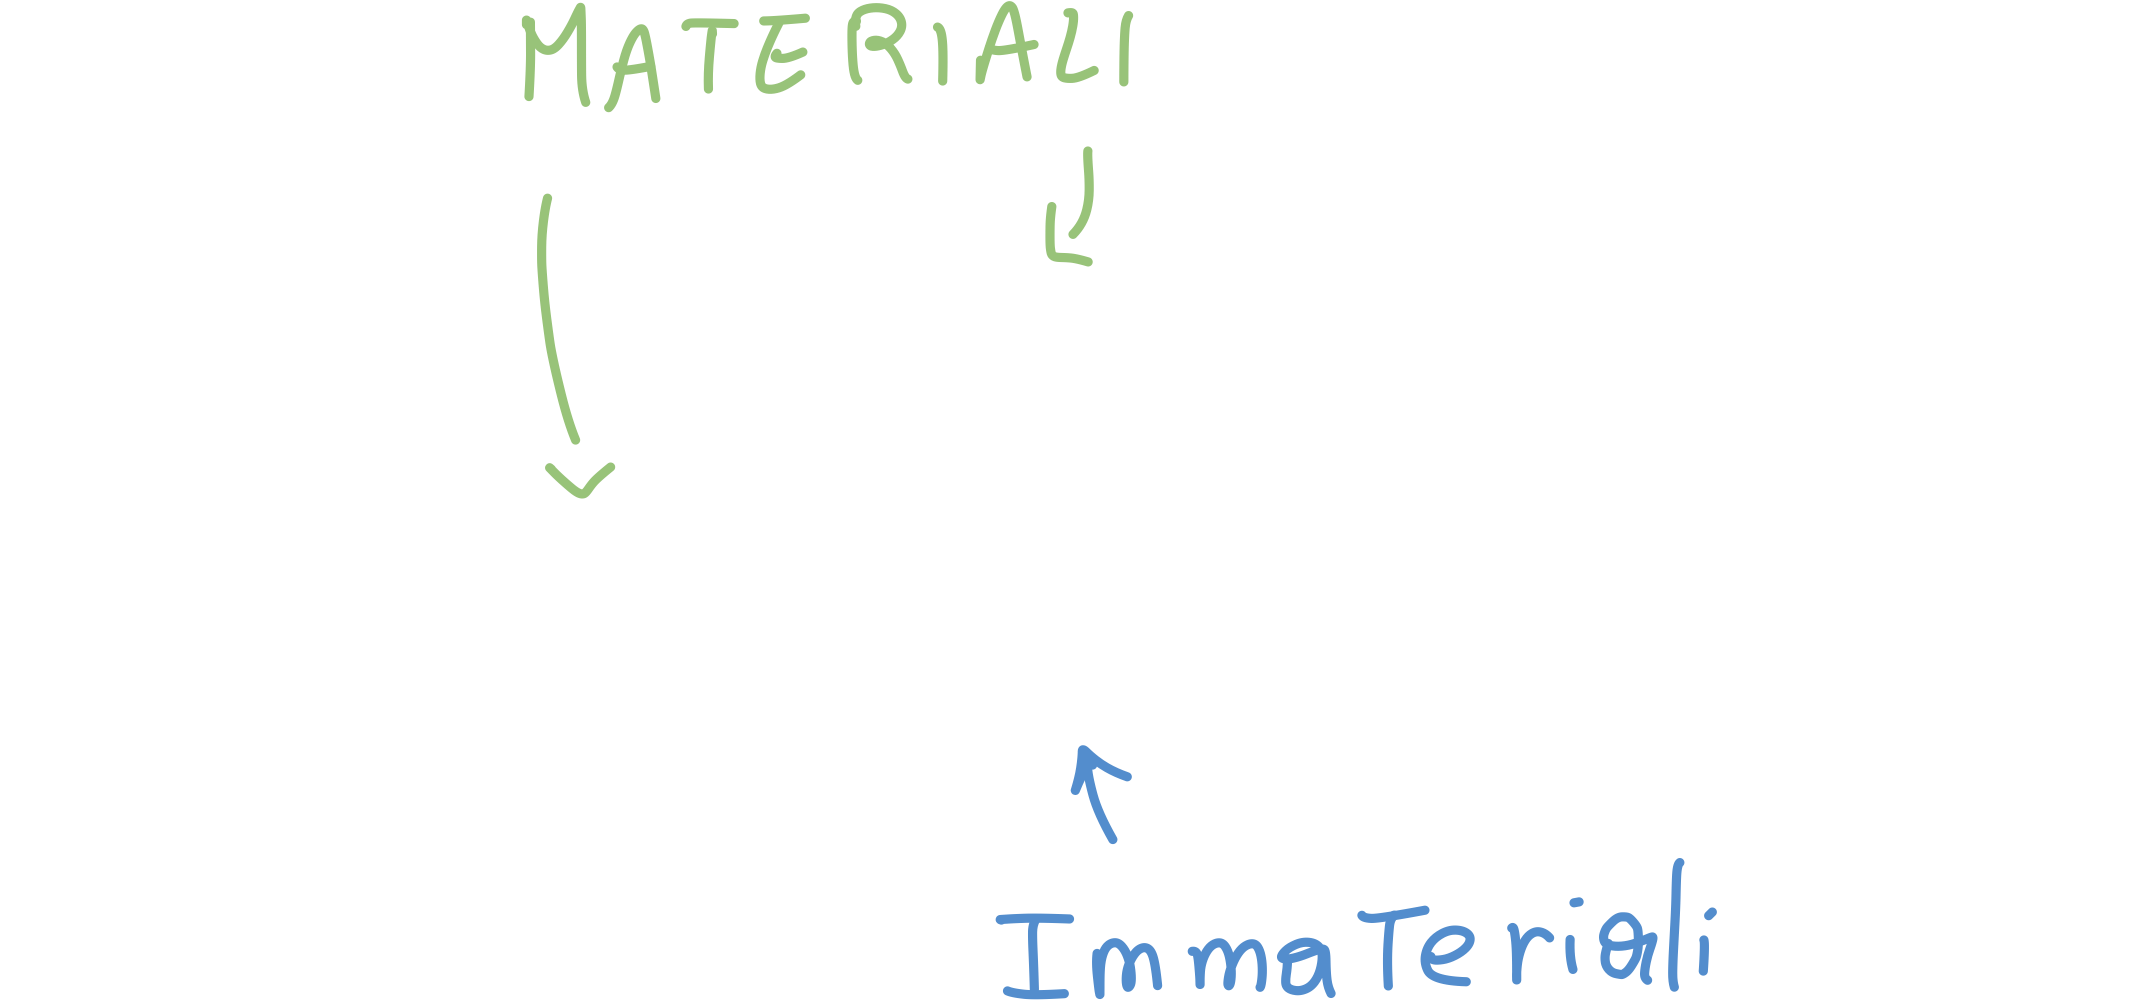 MATERIALI
Immateriali